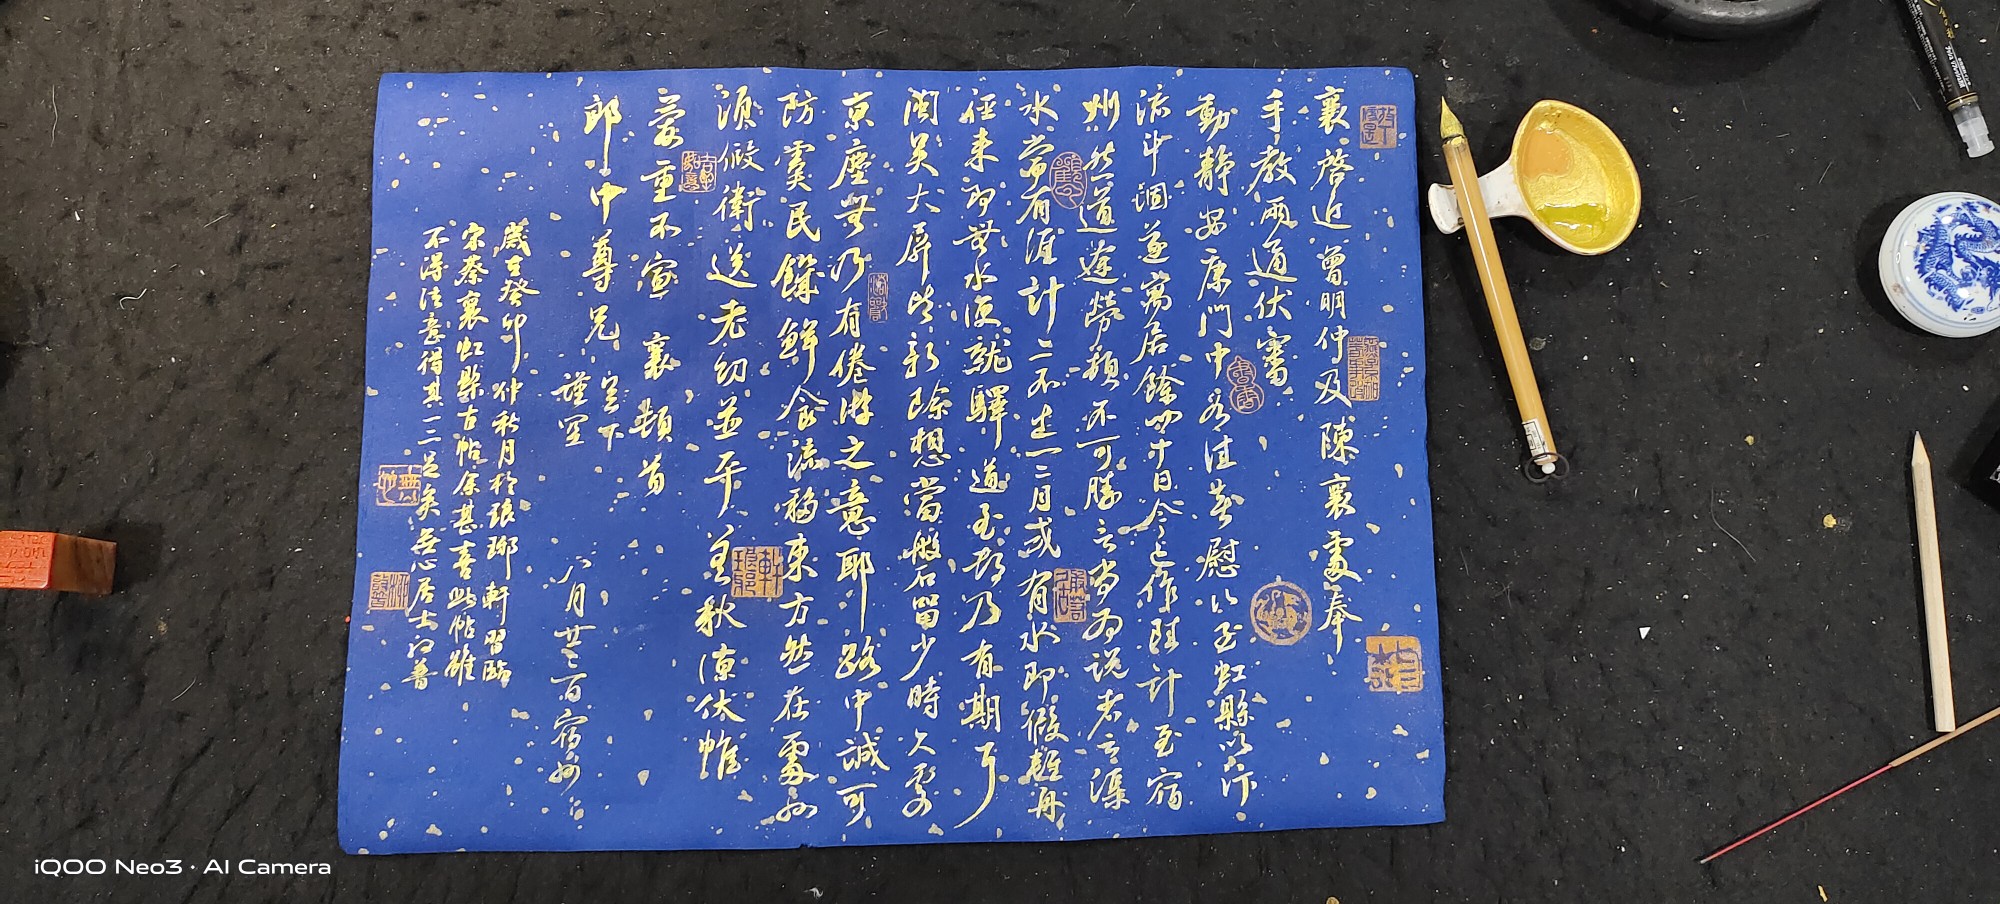 襄啓近曾明仲及陳襄處奉
手教兩通伏審
動靜安康門中各佳芳慰以至虹縣以汴
流斗涸遂寓居餘四十日今已作陸計至宿
州然道途勞頓不可勝言尚為說者云渠
水當有涯計亦不出一二月或有水即假輕舟
徑來即無水便就驛道至都乃有期耳
閩吳大屏皆新除想當磐留少時久處
京塵無乃有倦游之意耶路中誠可
防雲民饑鮮食流移東方然在處州
須假衛送老幼並平至秋涼伏惟
愛重不宣 襄頓首
郎中尊兄 坐下
謹空
八月廿三日宿州
歲在癸卯仲秋月於琅琊軒習臨
宋蔡襄虹縣古帖余甚喜此帖雖
不得法意得其一二足矣無心居士
iQOO Neo3 · AI Camera